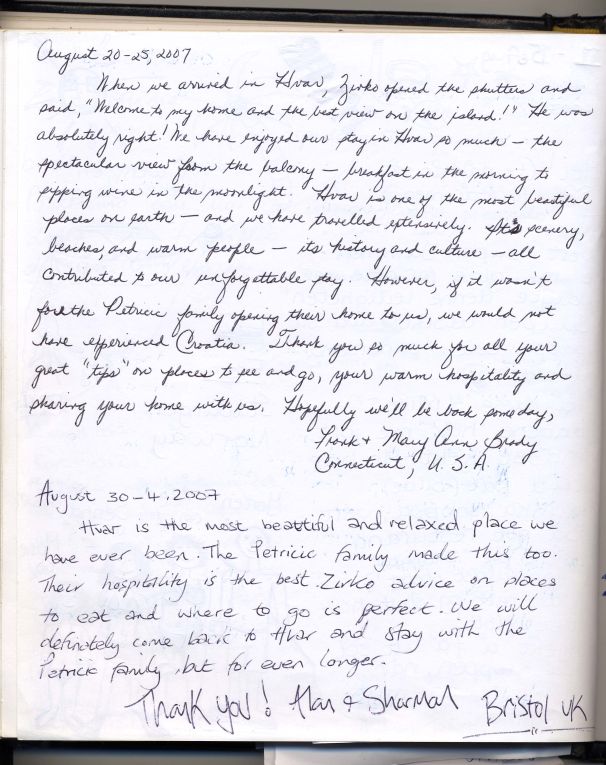 August 20-25, 2007
When we arrived in Hvar, Zirko opened the shutters and
said, "Welcome to my home and the best view on the island!" He was
absolutely right! We have enjoyed our stay in Hvar so much - the
spectacular view from the balcony - breakfast in the morning to
sipping wine in the moonlight. Hvar is one of the most beautiful
places on earth - and we have travelled extensively. It's scenery,
beaches, and warm people - its history and culture - all
contributed to our unforgettable stay. However, if it wasn't
for the Petricic family opening their home to us, we would not
have experienced Croatia. Thank you so much for all your
great "tips" on places to see and go, your warm hospitality and
sharing your home with us. Hopefully we'll be back some day,
Frank + Mary Ann Brady
Connecticut, U.S.A.
August 30-4.2007
Hvar is the most beautiful and relaxed place we
have ever been. The Petricic family made this too.
Their hospitality is the best. Zirko advice on places
to eat and where to go is perfect. We will
definately come back to Hvar and stay with the
Petricic family, but for even longer.
Thank you! Alan + Sharmah Bristol UK